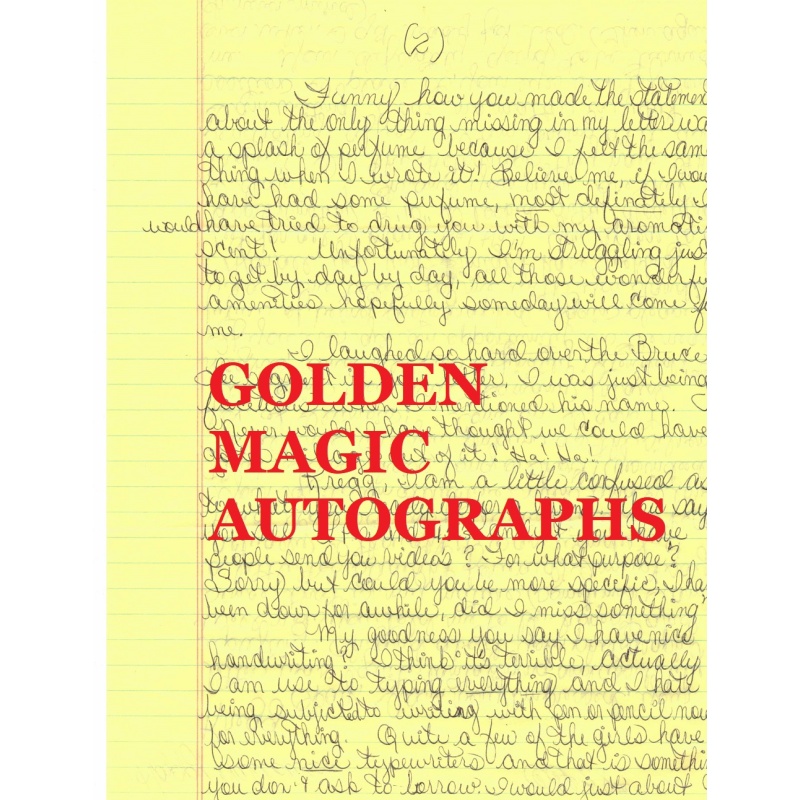 (2)
Funny how you made the statemen
about the only thing missing in my letter wa
a splash of perfume because I felt the sam
thing when I wrote it! Believe me, if I wou
have had some perfume, most definately I
would have tried to drug you with my aromati
scent! Unfortunatly I'm struggling just
to get by day by day, all those wonderfu
amenities hopefully someday will come f
me.
I laughed so hard over the Bruce
Lee segment in your letter, I was just being
facetious when I mentioned his name.
Never would have thought we could have
of it! Ha! Ha!
GOLDEN
MAGIC
AUTOGRAPHS
Kregg, I am a little confused as
to what say
you have
people send you videos? For what purpose?
Sorry but could you be more specific, I ha
been down for awhile, did I miss something
My goodness you say I have nice
handwriting? I think it's terrible, actually
I am use to typing everything and I hate
being subjected to writing with pen or pencil now
for everything. Quite a few of the girls have
some nice typewriters and that is somethin
you don't ask to borrow. I would just about